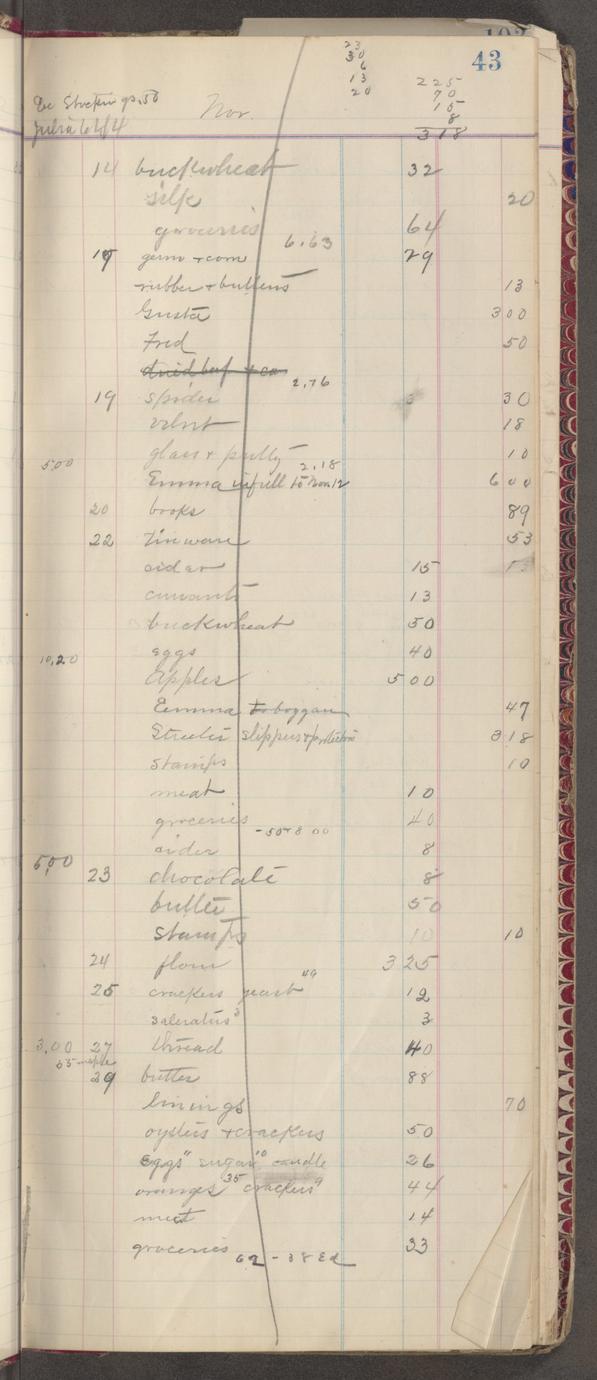 103
43
23
30
6
13
20
225
70
15
8
318
Stockings .50
Nov.
Julia
14 buckwheat 32
silk 20
groceries 64
6.63
19 germ + corn 29
rubber + buttons 13
Gusta 300
Fred 50
dried beef
2,76
19 spider 30
velvet 18
glass + putty 10
500
2.18
Emma in full to Nov 12 600
20 books 89
22 tinware 53
cider 15
currants 13
buckwheat 50
eggs 40
10,20
apples 500
Emma toboggan 47
slippers + 318
stamps 10
meat 10
groceries 40
cider 8
5,00
23 chocolate 8
butter 50
stamps 10 10
24 flour 325
25 crackers yeast 12
saleratus 3 3
3,00 27 thread 40
29 butter 88
linings 70
oysters + crackers 50
eggs sugar 10 candle 26
oranges 35 crackers 9 44
meat 14
groceries 33
62 - 38 Ed